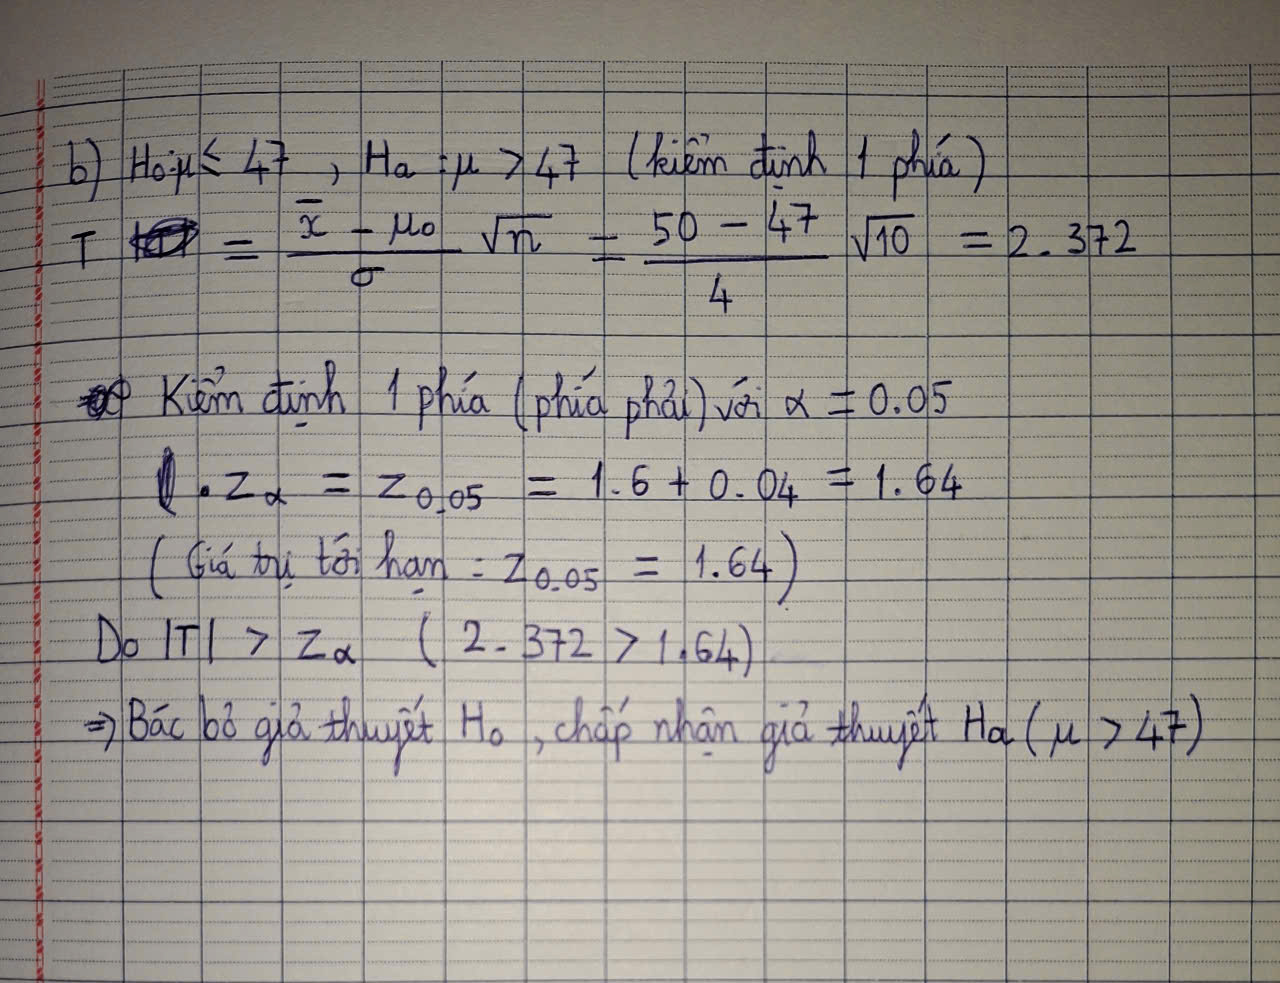 b) H₀: μ ≤ 47 , Ha : μ > 47 (kiểm định 1 phía)
T = (x̄ − μ₀)/σ √n = (50 − 47)/4 √10 = 2.372
Kiểm định 1 phía (phía phải) với α = 0.05
. Zα = Z0.05 = 1.6 + 0.04 = 1.64
(Giá trị tới hạn = Z0.05 = 1.64)
Do |T| > Zα ( 2.372 > 1.64)
=> Bác bỏ giả thuyết H₀ , chấp nhận giả thuyết Ha ( μ > 47)